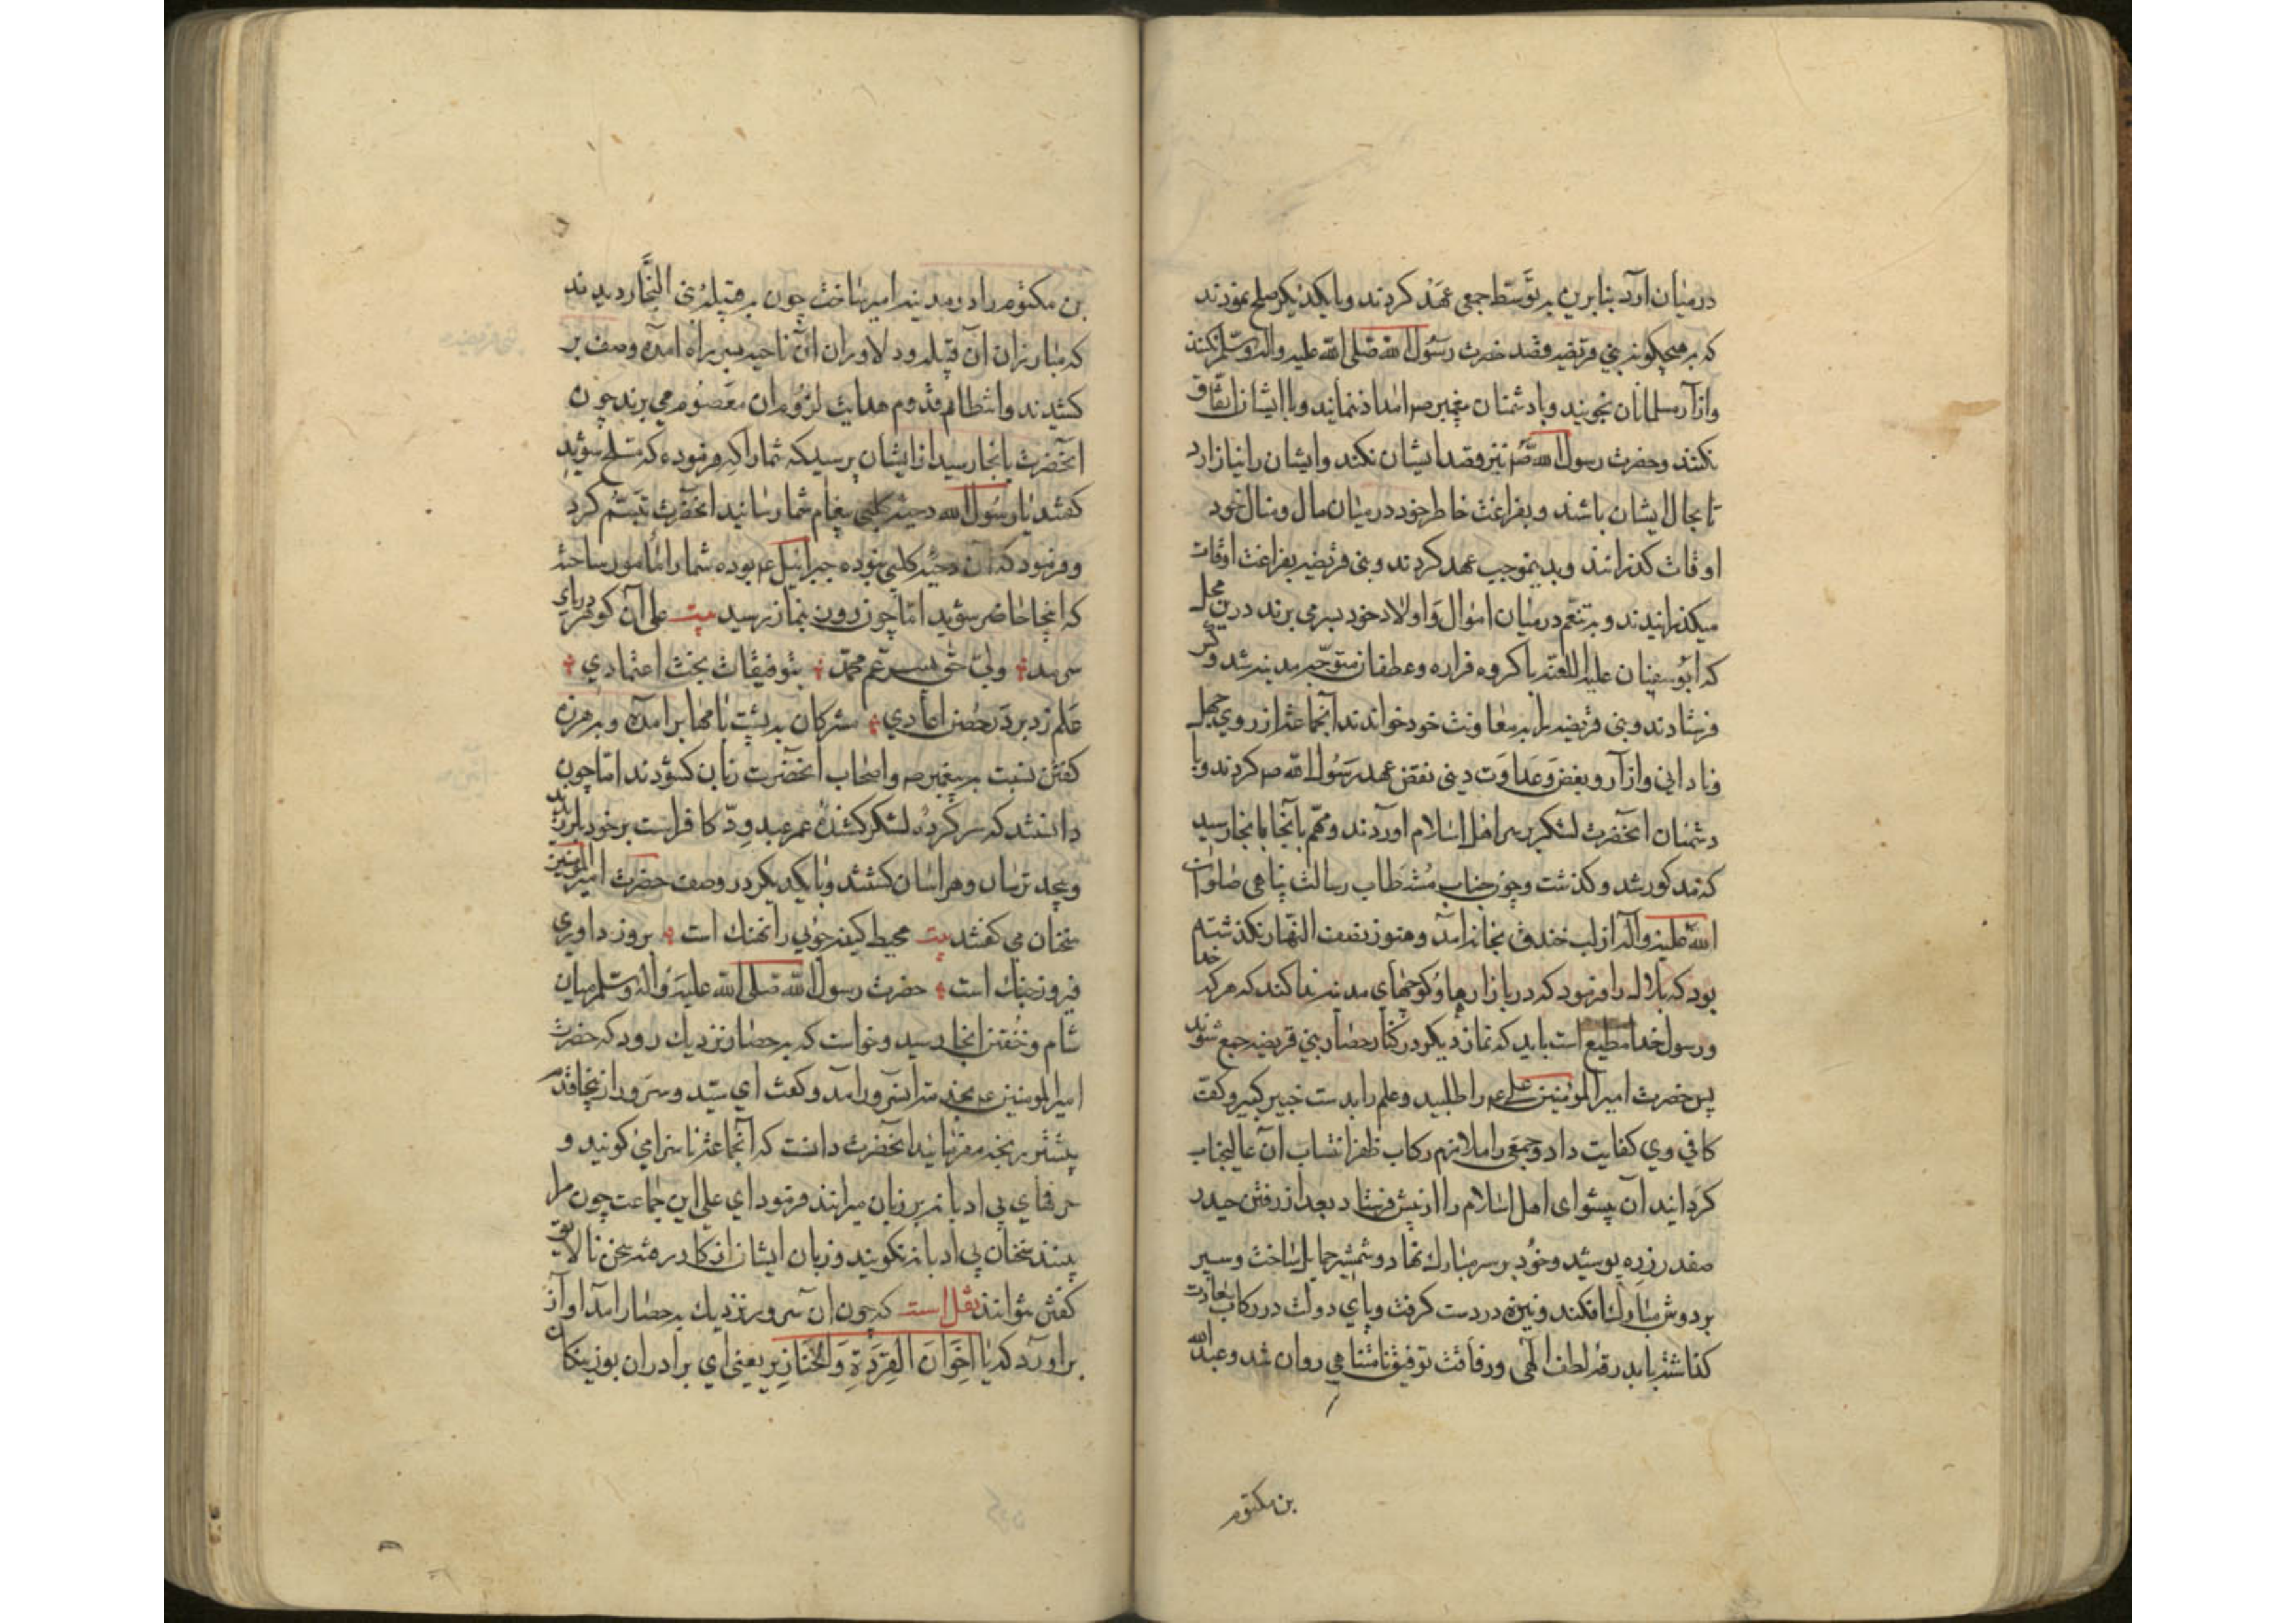 درمیان آرد بنابرین بر توسط جمعی عهد کردند و با یکدیگر صلح نمودند
که بهیچگونه بنی قریضه قصد حضرت رسول الله صلی الله علیه واله وسلم نکنند
وازار مسلمانان نجویند و با دشمنان پیغمبر صم امداد ننمایند و با ایشان اتفاق
نکنند وحضرت رسول الله صم نیز قصد ایشان نکند وایشان را نیازارد
تا بحال ایشان باشند و بفراغت خاطر خود درمیان مال ومنال خود
اوقات کذرانند وبدینموجب عهد کردند وبنی قریضه بفراغت اوقات
میکذرانیدند و به تنعم درمیان اموال و اولاد خود بسر می بردند درین محل
که ابوسفیان علیه اللعنه با کروه فزاره وعطفان متوجه مدینه شد وکس
فرستادند وبنی قریضه را به معاونت خود خواندند آنجماعت از روی جهل
ونادانی وازار وبغض وعداوت دینی نقض عهد رسول الله صم کردند وبا
دشمنان انحضرت لشکر بر سر اهل اسلام اوردند ومهم بانجا بانجا رسید
که مذکور شد وکذشت وچون جناب مستطاب رسالت پناهی صلوات
الله علیه واله از لب خندق بخانه امد وهنوز نصف النهار نکذشته
بود که بلال را فرمود که در بازارها وکوچهای مدینه ندا کند که هرکه خدا
ورسول خدا مطیع است باید که نماز دیکر در کنار حصار بنی قریضه جمع شوند
پس حضرت امیر المؤمنین علی عم را طلبید وعلم را بدست خیبر کیر وکفت
کافی وی کفایت داد وجمعی را ملازم رکاب ظفر انتساب آن عالیجناب
کردانید آن پیشوای اهل اسلام را از پیش فرستاد بعد از رفتن حیدر
صفدر زره پوشید وخود بر سر مبارک نهاد وشمشیر حمایل ساخت وسپر
بر دوش مبارک افکند ونیزه در دست کرفت وپای دولت در رکاب سعادت
کذاشته با بدرقه لطف الهی ورفاقت توفیق نامتناهی روان شد وعبد الله
بن مکتوم
بن مکتوم را در مدینه امیر ساخت چون به قبیله بنی النجار دیدند
که مبارزان آن قبیله ودلاوران آن ناحیه بسر راه آمده وصف بر
کشیدند وانتظام قدوم هدایت لزوم ان معصوم می برند چون
انحضرت بانجا رسید از ایشان پرسید که شما را که فرموده که مسلح شوید
کفتند یا رسول الله دحیه کلبی پیغام شما رسانید انحضرت تبسم کرد
وفرمود که آن دحیه کلبی نبوده جبرائیل عم بوده شما را مامور ساخته
که اینجا حاضر شوید اما چون زدن بنماز رسید بیت علی آن کوهر دریای
سرمد ولی حق پسر عم محمد بتوفیقات بخت اعتمادی
علم زد بر در حصن اعادی مشرکان به پشت بامها برامده وبه هرزه
کفتن نسبت به پیغمبر صم واصحاب انحضرت زبان کشودند اما چون
دانستند که سر کرده لشکر کشنده عمر عبدود کافر است بر خود لرزیدند
وبیحد ترسان وهراسان کشتند وبا یکدیکر در وصف حضرت امیر المؤمنین
سخنان می کفتند بیت محیط کینه جوئی را نهنک است بروز داوری
فیروز جنک است حضرت رسول الله صلی الله علیه واله وسلم میان
شام وخفتن انجا رسید وخواست که به حصار نزدیک رود که حضرت
امیر المومنین عم بخدمت آنسرور آمد وکفت ای سید وسرور از ینجا قدم
پیشتر رنجه مفرمائید انحضرت دانست که آنجماعت ناسزا می کویند و
حرفهای بی ادبانه بر زبان میرانند فرمود ای علی این جماعت چون مرا
بینند سخنان بی ادبانه نکویند وزبان ایشان از کار رفته سخن نالایق
کفتن نتوانند نقل است که چون ان سرور نزدیک به حصار آمد اواز
براورد که یا اخوان القردة والخنازیر یعنی ای برادران بوزینکان